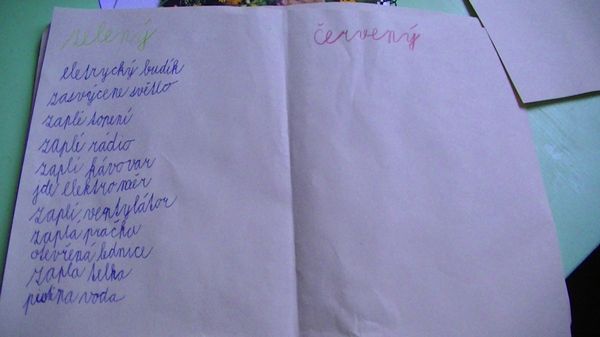 zelený
červený
eletrycký budík
zasvýcene světlo
zaplé topení
zaplé rádio
zaplí kávovar
jde elektroměr
zaplí ventylátor
zapla pračka
otevřená lednice
zapla telka
voda